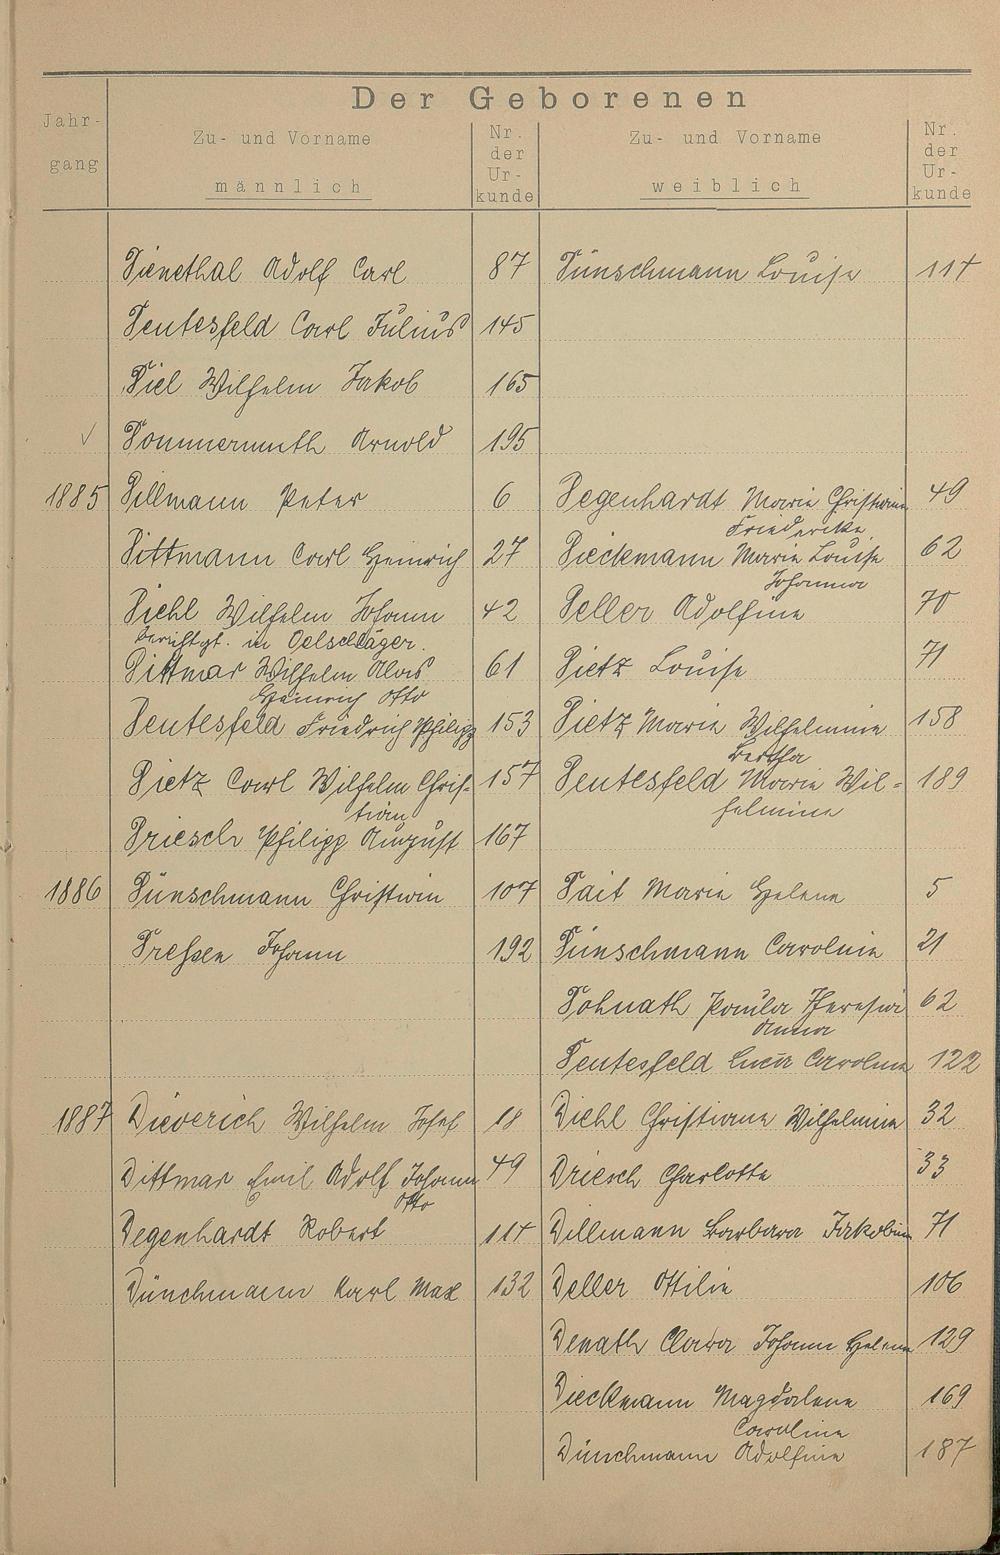 Der Geborenen
Jahr-
gang
Zu- und Vorname
männlich
Nr.
der
Ur-
kunde
Zu- und Vorname
weiblich
Nr.
der
Ur-
kunde
Dienethal Adolf Carl 87 Dünschmann Louise 114
Deutesfeld Carl Julius 145
Diel Wilhelm Jakob 165
✓ Dommermuth Arnold 195
1885 Dillmann Peter 6 Degenhardt Marie Christiane 49
Friederike
Dittmann Carl Heinrich 27 Dieckmann Marie Louise 62
Johanna
Diehl Wilhelm Johann 42 Deller Adolfine 70
berichtgt. in Oelschläger.
Dittmar Wilhelm Alois 61 Dietz Louise 71
Heinrich Otto
Deutesfeld Friedrich Philipp 153 Dietz Marie Wilhelmine 158
Bertha
Dietz Carl Wilhelm Chris- 157 Deutesfeld Marie Wil= 189
tian helmine
Driesch Philipp August 167
1886 Dünschmann Christian 107 Dait Marie Helene 5
Dressen Johann 192 Dünschmann Caroline 21
Dohnath Paula Theresia 62
Anna
Deutesfeld Lucia Caroline 122
1887 Dieverich Wilhelm Josef 18 Diehl Christiane Wilhelmine 32
Dittmar Emil Adolf Johann 49 Driesch Charlotte 33
Otto
Degenhardt Robert 114 Dillmann Barbara Jakobine 71
Dünchmann Karl Max 132 Deller Ottilie 106
Denath Clara Johann Helene 129
Dieckmann Magdalene 169
Caroline
Dünchmann Adolfine 187